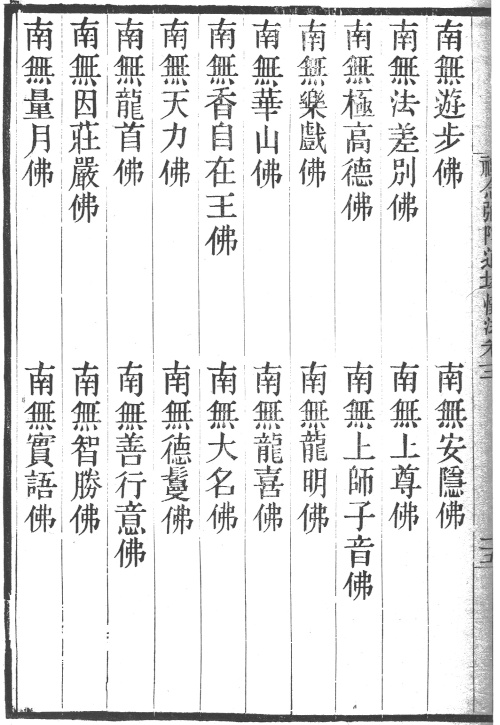 南無遊步佛　南無安隱佛
南無法差別佛　南無上尊佛
南無極高德佛　南無上師子音佛
南無樂戲佛　南無龍明佛
南無華山佛　南無龍喜佛
南無香自在王佛　南無大名佛
南無天力佛　南無德鬘佛
南無龍首佛　南無善行意佛
南無因莊嚴佛　南無智勝佛
南無量月佛　南無實語佛